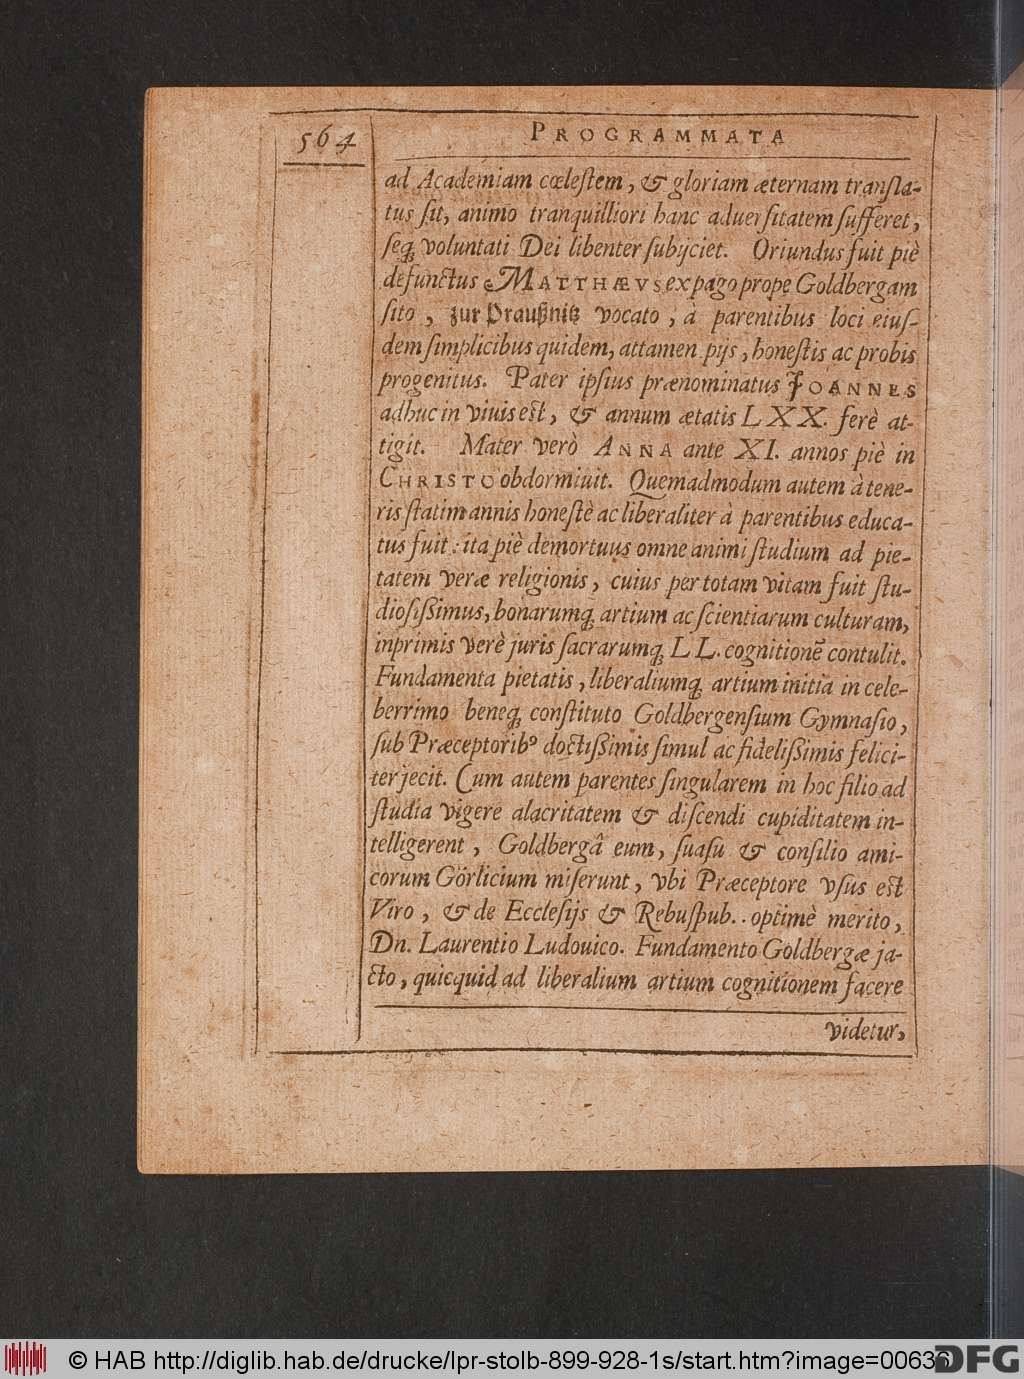 564
PROGRAMMATA
ad Academiam cœlestem, & gloriam æternam transla-
tus sit, animo tranquilliori hanc aduersitatem sufferet,
seq; voluntati Dei libenter subijciet. Oriundus fuit piè
defunctus MATTHÆVS ex pago prope Goldbergam
sito, zur Praußnitz vocato, à parentibus loci eius-
dem simplicibus quidem, attamen pijs, honestis ac probis
progenitus. Pater ipsius prænominatus JOANNES
adhuc in viuis est, & annum ætatis LXX. ferè at-
tigit. Mater verò ANNA ante XI. annos piè in
CHRISTO obdormiuit. Quemadmodum autem à tene-
ris statim annis honestè ac liberaliter à parentibus educa-
tus fuit: ita piè demortuus omne animi studium ad pie-
tatem veræ religionis, cuius per totam vitam fuit stu-
diosißimus, bonarumq; artium ac scientiarum culturam,
inprimis verè juris sacrarumq; LL. cognitionẽ contulit.
Fundamenta pietatis, liberaliumq; artium initia in cele-
berrimo beneq; constituto Goldbergensium Gymnasio,
sub Præceptoribꝰ doctißimis simul ac fidelißimis felici-
ter jecit. Cum autem parentes singularem in hoc filio ad
studia vigere alacritatem & discendi cupiditatem in-
telligerent, Goldbergâ eum, suasu & consilio ami-
corum Görlicium miserunt, vbi Præceptore vsus est
Viro, & de Ecclesijs & Rebuspub.. optimè merito,
Dn. Laurentio Ludouico. Fundamento Goldbergæ ja-
cto, quicquid ad liberalium artium cognitionem facere
videtur,
© HAB http://diglib.hab.de/drucke/lpr-stolb-899-928-1s/start.htm?image=00636
DFG